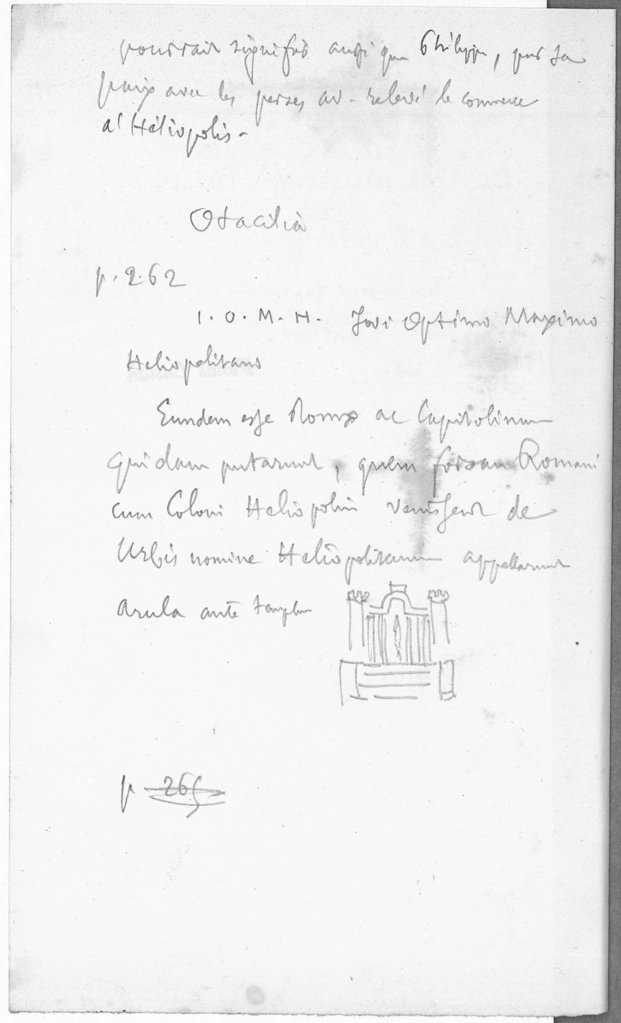 pourrait signifier aussi que Philippe, par sa
paix avec les perses av. relevé le commerce
d'Héliopolis.
Otacilia
p. 262
I. O. M. H. Jovi Optimo Maximo
Heliopolitano
Eundem esse Romæ ac Capitolinum
quidam putarunt, quem forsan Romani
cum Coloni Heliopolim venissent de
Urbis nomine Heliopolitanum appellarunt
arula ante templum
p 265